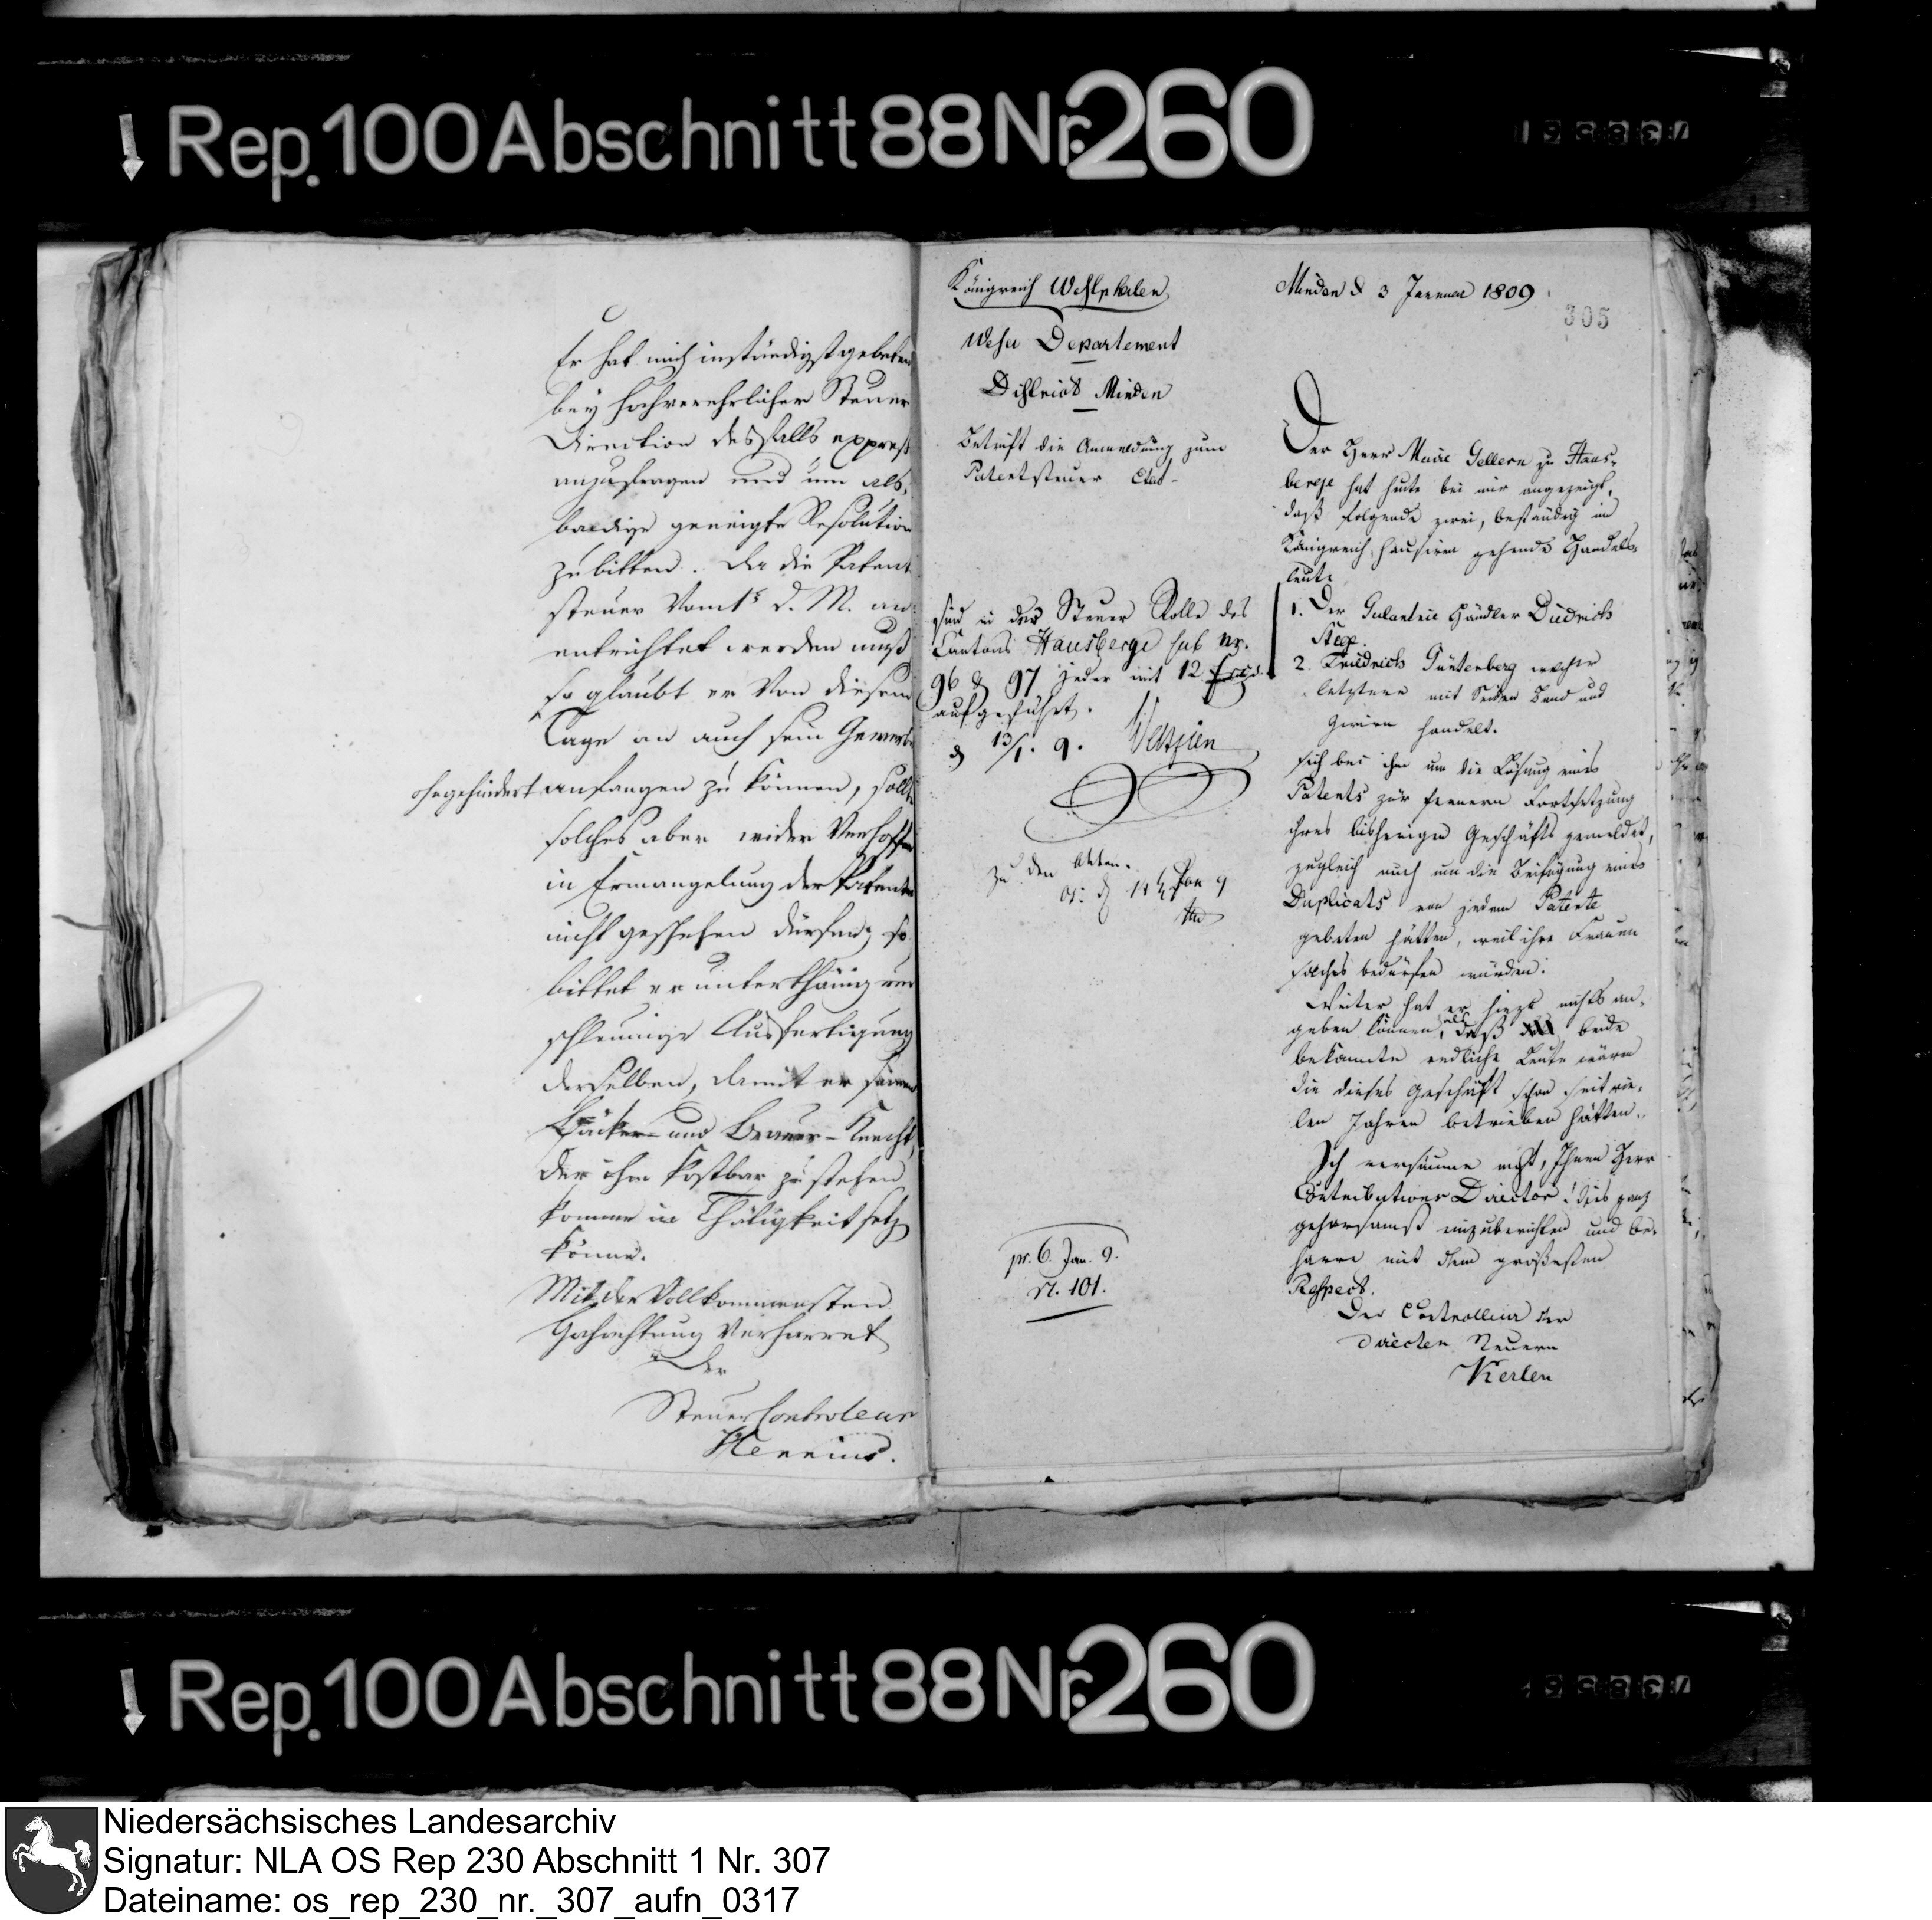 Rep. 100 Abschnitt 88 Nr. 260
Er hat mich inständigst gebeten
bey hochverehrlicher Steuer
Direction desfalls expreß
anzufragen und um als,
baldige geneigte Resolution
zu bitten. Da die Patent
steuer vom 1t d. M. an
entrichtet werden muß
so glaubt er von diesem
Tage an auch sein Gewerbe
ohngehindert anfangen zu können, sollte
solches aber wider Verhoffen
in Ermangelung der Patente
nicht geschehen dürfen; so
bittet er unterthänig um
schleunige Ausfertigung
derselben, damit er seinen
Bäcker- und Brauer-Knecht,
der ihm kostbar zu stehen
komme in Thätigkeit setzen
könne.
Mit der Vollkommensten
Hochachtung verharret
Der
Steuer Controleur
Königreich Westphalen
Weser Departement
District Minden
Betrift die Anmeldung zum
Patentsteuer Etat
sind in der Steuer Rolle des
Cantons Hausberge sub Nr.
96 & 97 jeder mit 12
aufgeführt.
d 13/1. 9.
Zu den Akten.
14 Jan 9
pr. 6. Jan. 9.
N. 101.
Minden d 3 Januar 1809
305
Der Herr Maire Gellern zu Haus-
berge hat heute bei mir angezeigt,
daß folgende zwei, beständig im
Königreich hausiren gehende Handels-
leute
1. Der Galanterie Händler Diedrich
Stege.
2. Friedrich Güntenberg welcher
letztere mit Seiden Band und
Zwirn handelt.
sich bei ihm um die Lösung eines
Patents zur fernern Fortsetzung
ihres bisherigen Geschäfts gemeldet,
zugleich auch um die Beifügung eines
Duplicats von jedem Patente
gebeten hätten, weil ihre Frauen
solches bedürfen würden.
Weiter hat er hiezu nichts an-
geben können, als daß beide
bekannte redliche Leute wären
die dieses Geschäft schon seit vie-
len Jahren betrieben hätten.
Ich versäume nicht, Ihnen Herr
Contributions Director! dies ganz
gehorsamst einzuberichten und be-
harre mit dem größesten
Respect.
Der Controlleur der
directen Steuern
Kerlen
Rep. 100 Abschnitt 88 Nr. 260
Niedersächsisches Landesarchiv
Signatur: NLA OS Rep 230 Abschnitt 1 Nr. 307
Dateiname: os_rep_230_nr._307_aufn_0317